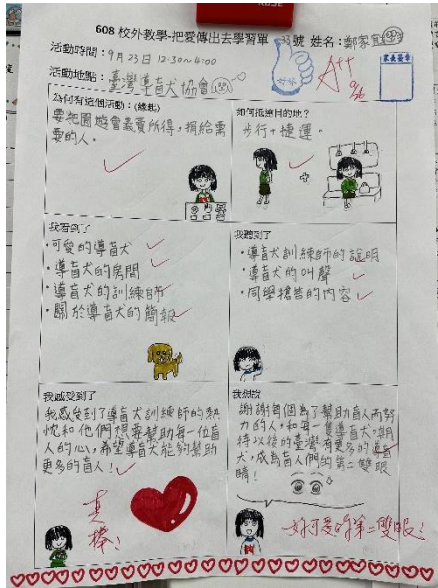 608 校外教學-把愛傳出去學習單 33號 姓名：鄭家宜
活動時間：9月23日 12:30~4:00
活動地點：臺灣導盲犬協會
A++
為何有這個活動：(緣起)
要把園遊會義賣所得，捐給需
要的人。
如何抵達目的地？
步行+捷運。
我看到了
·可愛的導盲犬
·導盲犬的房間
·導盲犬的訓練師
·關於導盲犬的簡報
我聽到了
·導盲犬訓練師的說明
·導盲犬的叫聲
·同學搶答的內容
我感受到了
我感受到了導盲犬訓練師的熱
忱和他們想要幫助每一位盲
人的心，希望導盲犬能夠幫助
更多的盲人！
真棒！
我想說
謝謝每個為了幫助盲人而努
力的人，和每一隻導盲犬，期
待以後的臺灣有更多的導盲
犬，成為盲人們的第二雙眼
睛！